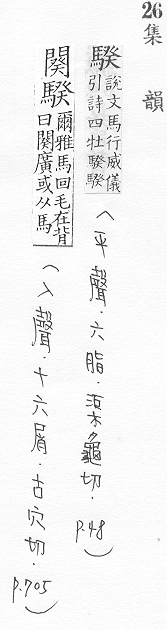 26 集韻
騤 說文馬行威儀
引詩四牡騤騤
(平聲.六脂.渠龜切.
p.48)
闋騤 爾雅馬回毛在背
曰闋廣或从馬
(入聲.十六屑.古穴切.
p.705)